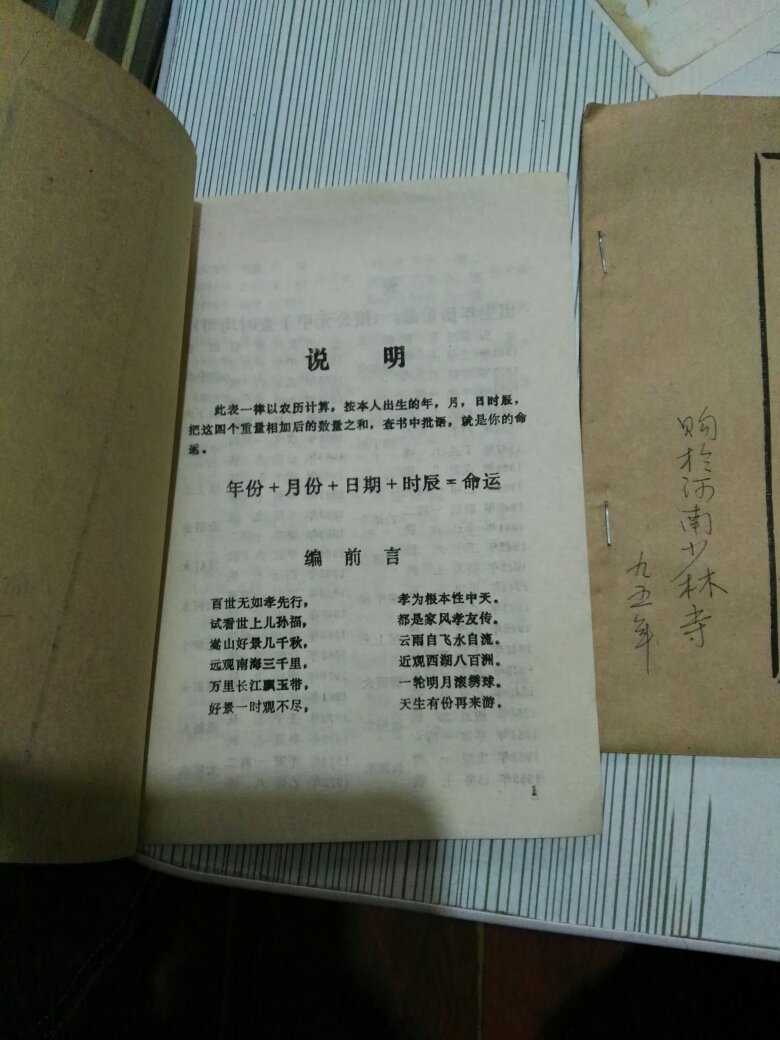 说 明
此表一律以农历计算，按本人出生的年，月，日时辰，
把这四个重量相加后的数量之和，查书中批语，就是你的命
运。
年份+月份+日期+时辰=命运
编 前 言
百世无如孝先行， 孝为根本性中天。
试看世上儿孙福， 都是家风孝友传。
嵩山好景几千秋， 云雨自飞水自流。
远观南海三千里， 近观西湖八百洲。
万里长江飘玉带， 一轮明月滚绣球。
好景一时观不尽， 天生有份再来游。
1
购于河南少林寺
九五年